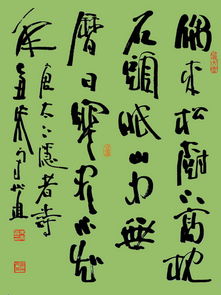 偶来松樹下高枕
石頭眠山中無
曆日寒盡不知
年
唐太上隐者詩